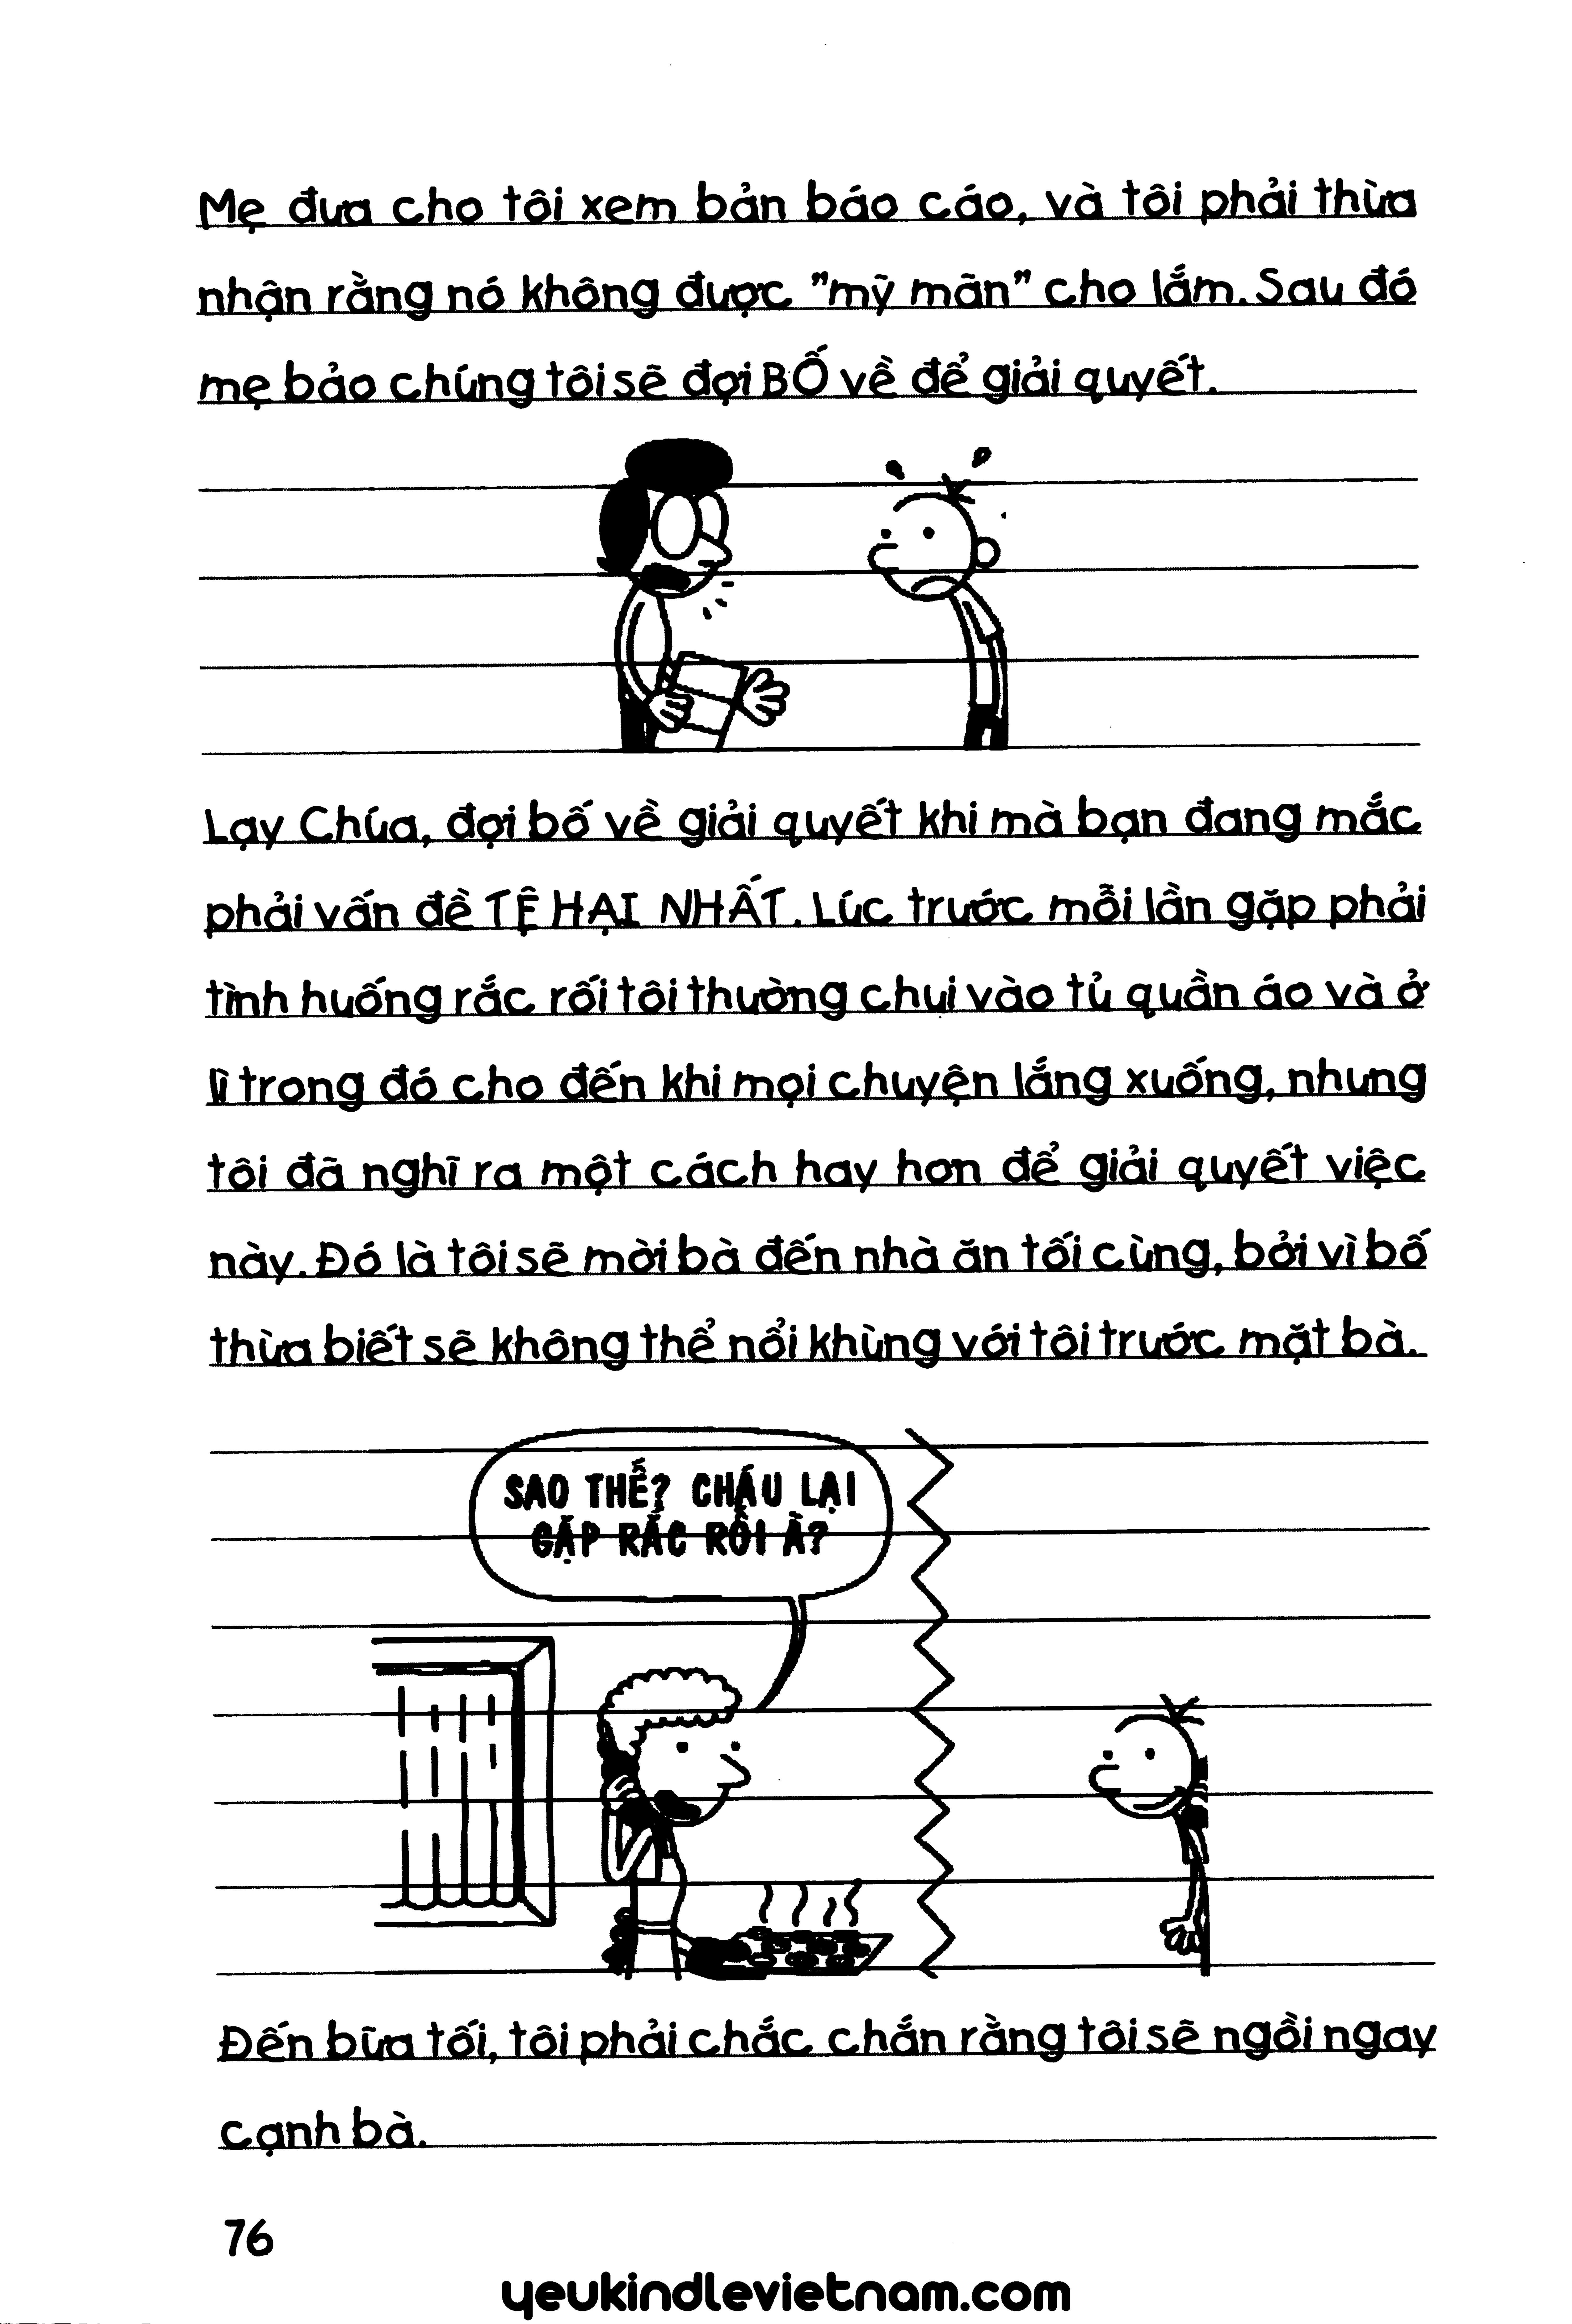 Mẹ đưa cho tôi xem bản báo cáo, và tôi phải thừa
nhận rằng nó không được "mỹ mãn" cho lắm. Sau đó
mẹ bảo chúng tôi sẽ đợi BỐ về để giải quyết.
Lạy Chúa, đợi bố về giải quyết khi mà bạn đang mắc
phải vấn đề TỆ HẠI NHẤT. Lúc trước mỗi lần gặp phải
tình huống rắc rối tôi thường chui vào tủ quần áo và ở
lì trong đó cho đến khi mọi chuyện lắng xuống, nhưng
tôi đã nghĩ ra một cách hay hơn để giải quyết việc
này. Đó là tôi sẽ mời bà đến nhà ăn tối cùng, bởi vì bố
thừa biết sẽ không thể nổi khùng với tôi trước mặt bà.
SAO THẾ? CHÁU LẠI
GẶP RẮC RỐI À?
Đến bữa tối, tôi phải chắc chắn rằng tôi sẽ ngồi ngay
cạnh bà.
76
yeukindlevietnam.com